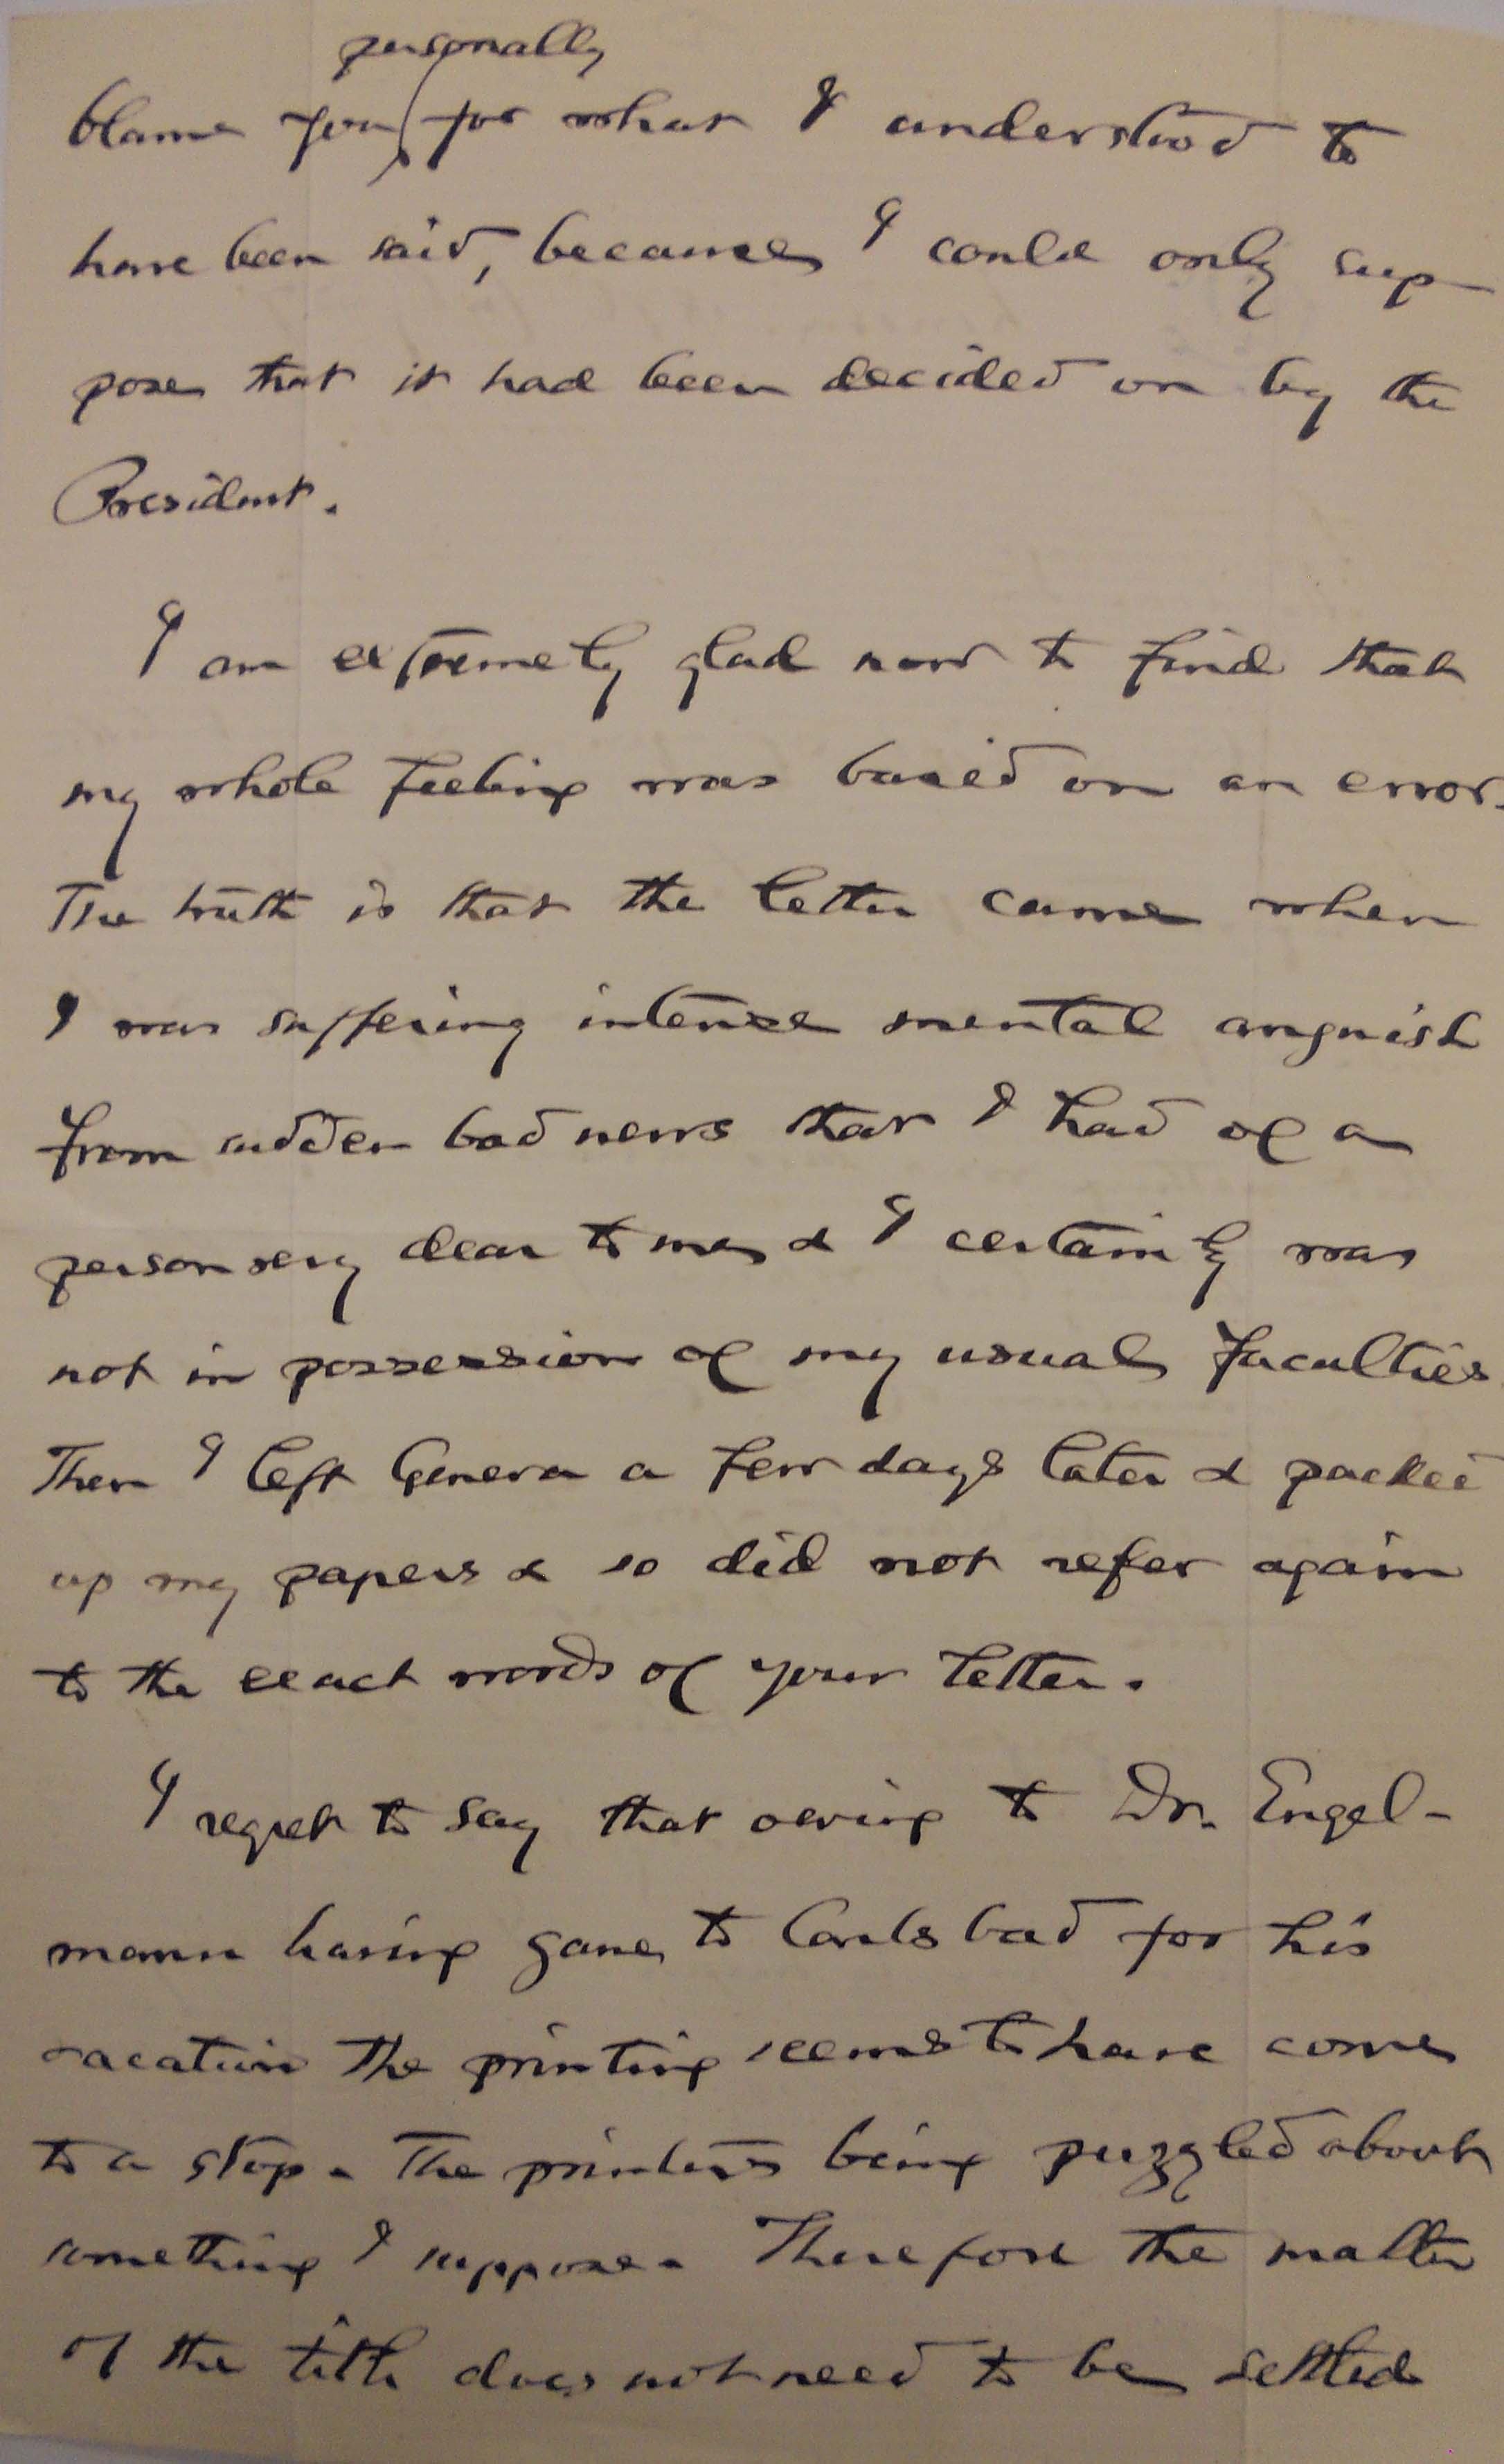 personally
blame you for what I understood to
have been said, because I could only sup-
pose that it had been decided on by the
President.
I am extremely glad now to find that
my whole feeling was based on an error.
The truth is that the letter came when
I was suffering intense mental anguish
from sudden bad news that I had of a
person very dear to me & I certainly was
not in possession of my usual faculties.
Then I left Geneva a few days later & packed
up my papers & so did not refer again
to the exact words of your letter.
I regret to say that owing to Dr. Engel-
mann having gone to Carlsbad for his
vacation the printing seems to have come
to a stop. The printers being puzzled about
something I suppose. Therefore the matter
of the title does not need to be settled